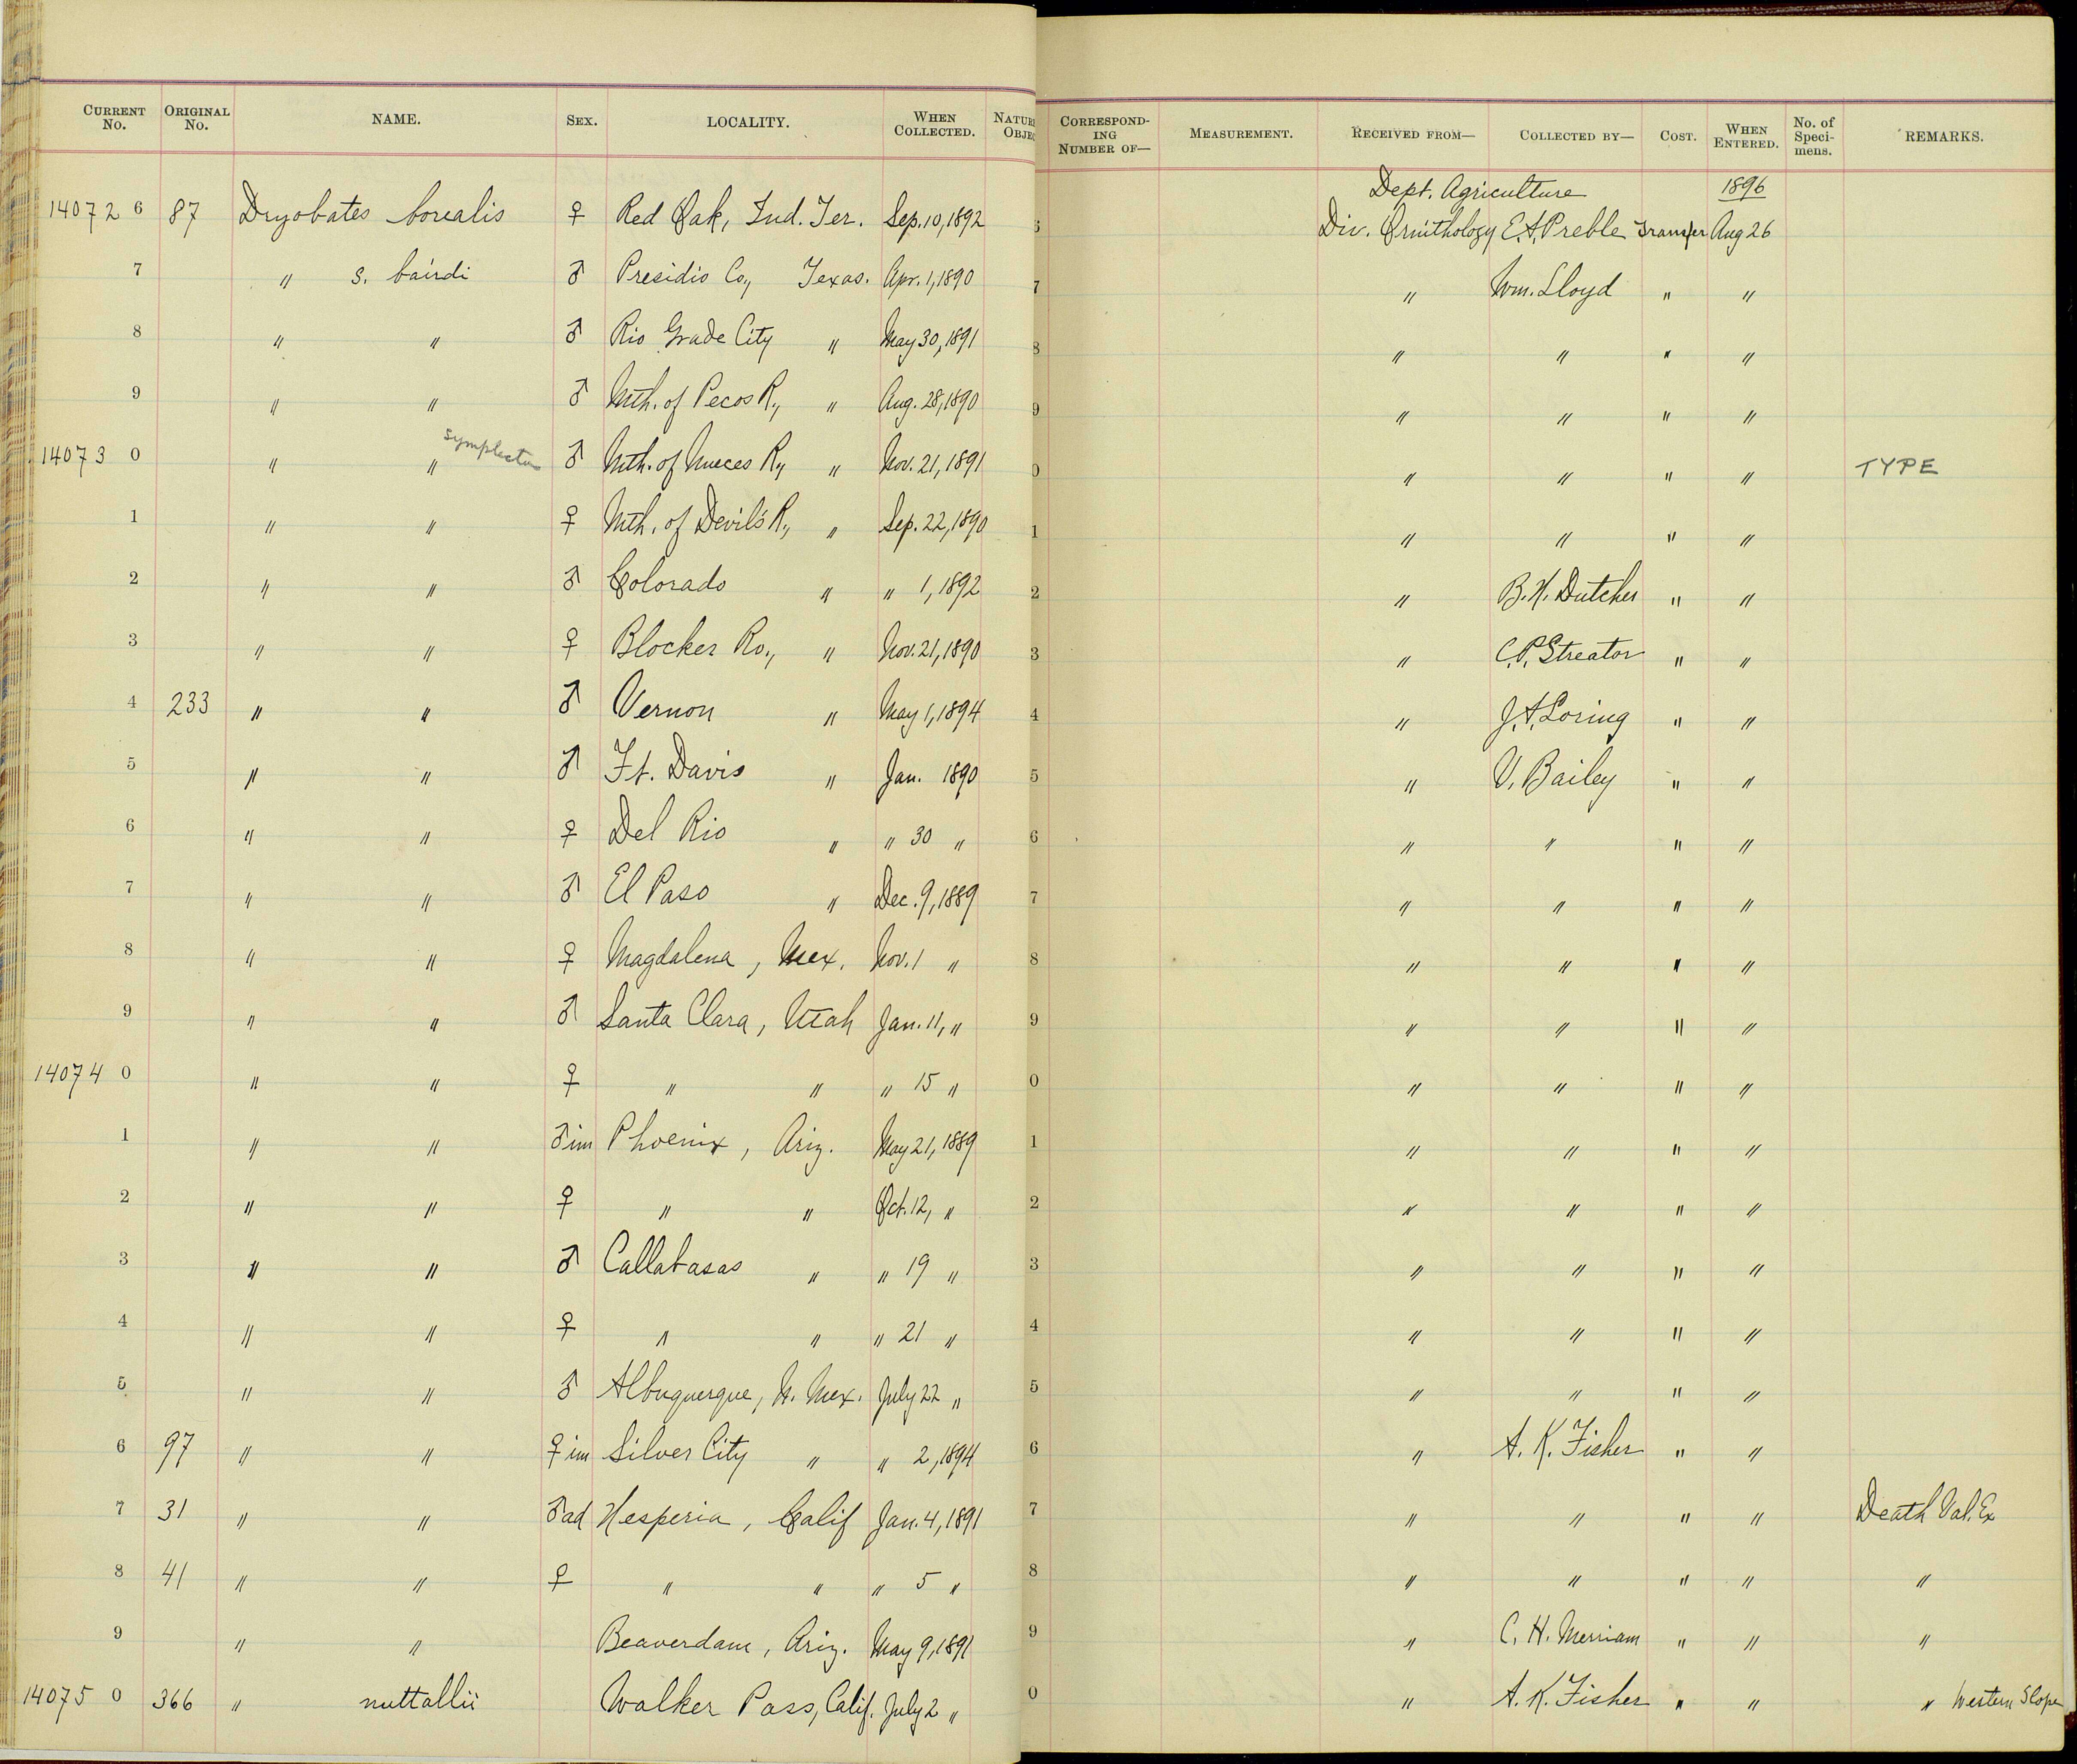 CURRENT No. ORIGINAL No. NAME. SEX. LOCALITY. WHEN COLLECTED. NATURE OBJEC CORRESPOND- ING NUMBER OF— MEASUREMENT. RECEIVED FROM— COLLECTED BY— COST. WHEN ENTERED. No. of Speci- mens. REMARKS.
Dept. Agriculture 1896
14072 6 87 Dryobates borealis ♀ Red Oak, Ind. Ter. Sep. 10, 1892 6 Div. Ornithology E. A. Preble Transfer Aug 26
7 " s. bairdi ♂ Presidio Co., Texas. Apr. 1, 1890 7 " Wm. Lloyd " "
8 " " ♂ Rio Grade City " May 30, 1891 8 " " " "
9 " " ♂ Mth. of Pecos R., " Aug. 28, 1890 9 " " " "
14073 0 " " symplectus ♂ Mth. of Nueces R., " Nov. 21, 1891 0 " " " " TYPE
1 " " ♀ Mth. of Devil's R., " Sep. 22, 1890 1 " " " "
2 " " ♂ Colorado " " 1, 1892 2 " B. H. Dutcher " "
3 " " ♀ Blocker Ro., " Nov. 21, 1890 3 " C. P. Streator " "
4 233 " " ♂ Vernon " May 1, 1894 4 " J. A. Loring " "
5 " " ♂ Ft. Davis " Jan. 1890 5 " V. Bailey " "
6 " " ♀ Del Rio " " 30 " 6 " " " "
7 " " ♂ El Paso " Dec. 9, 1889 7 " " " "
8 " " ♀ Magdalena, Mex. Nov. 1 " 8 " " " "
9 " " ♂ Santa Clara, Utah Jan. 11, " 9 " " " "
14074 0 " " ♀ " " " 15 " 0 " " " "
1 " " ♂ im Phoenix, Ariz. May 21, 1889 1 " " " "
2 " " ♀ " " Oct. 12, " 2 " " " "
3 " " ♂ Callabasas " " 19 " 3 " " " "
4 " " ♀ " " " 21 " 4 " " " "
5 " " ♂ Albuquerque, N. Mex. July 22 " 5 " " " "
6 97 " " ♀ im Silver City " " 2, 1894 6 " A. K. Fisher " "
7 31 " " ♂ ad Hesperia, Calif Jan. 4, 1891 7 " " " " Death Val. Ex
8 41 " " ♀ " " " 5 " 8 " " " " "
9 " " Beaverdam, Ariz. May 9, 1891 9 " C. H. Merriam " " "
14075 0 366 " nuttallii Walker Pass, Calif. July 2 " 0 " A. K. Fisher " " " Western Slope